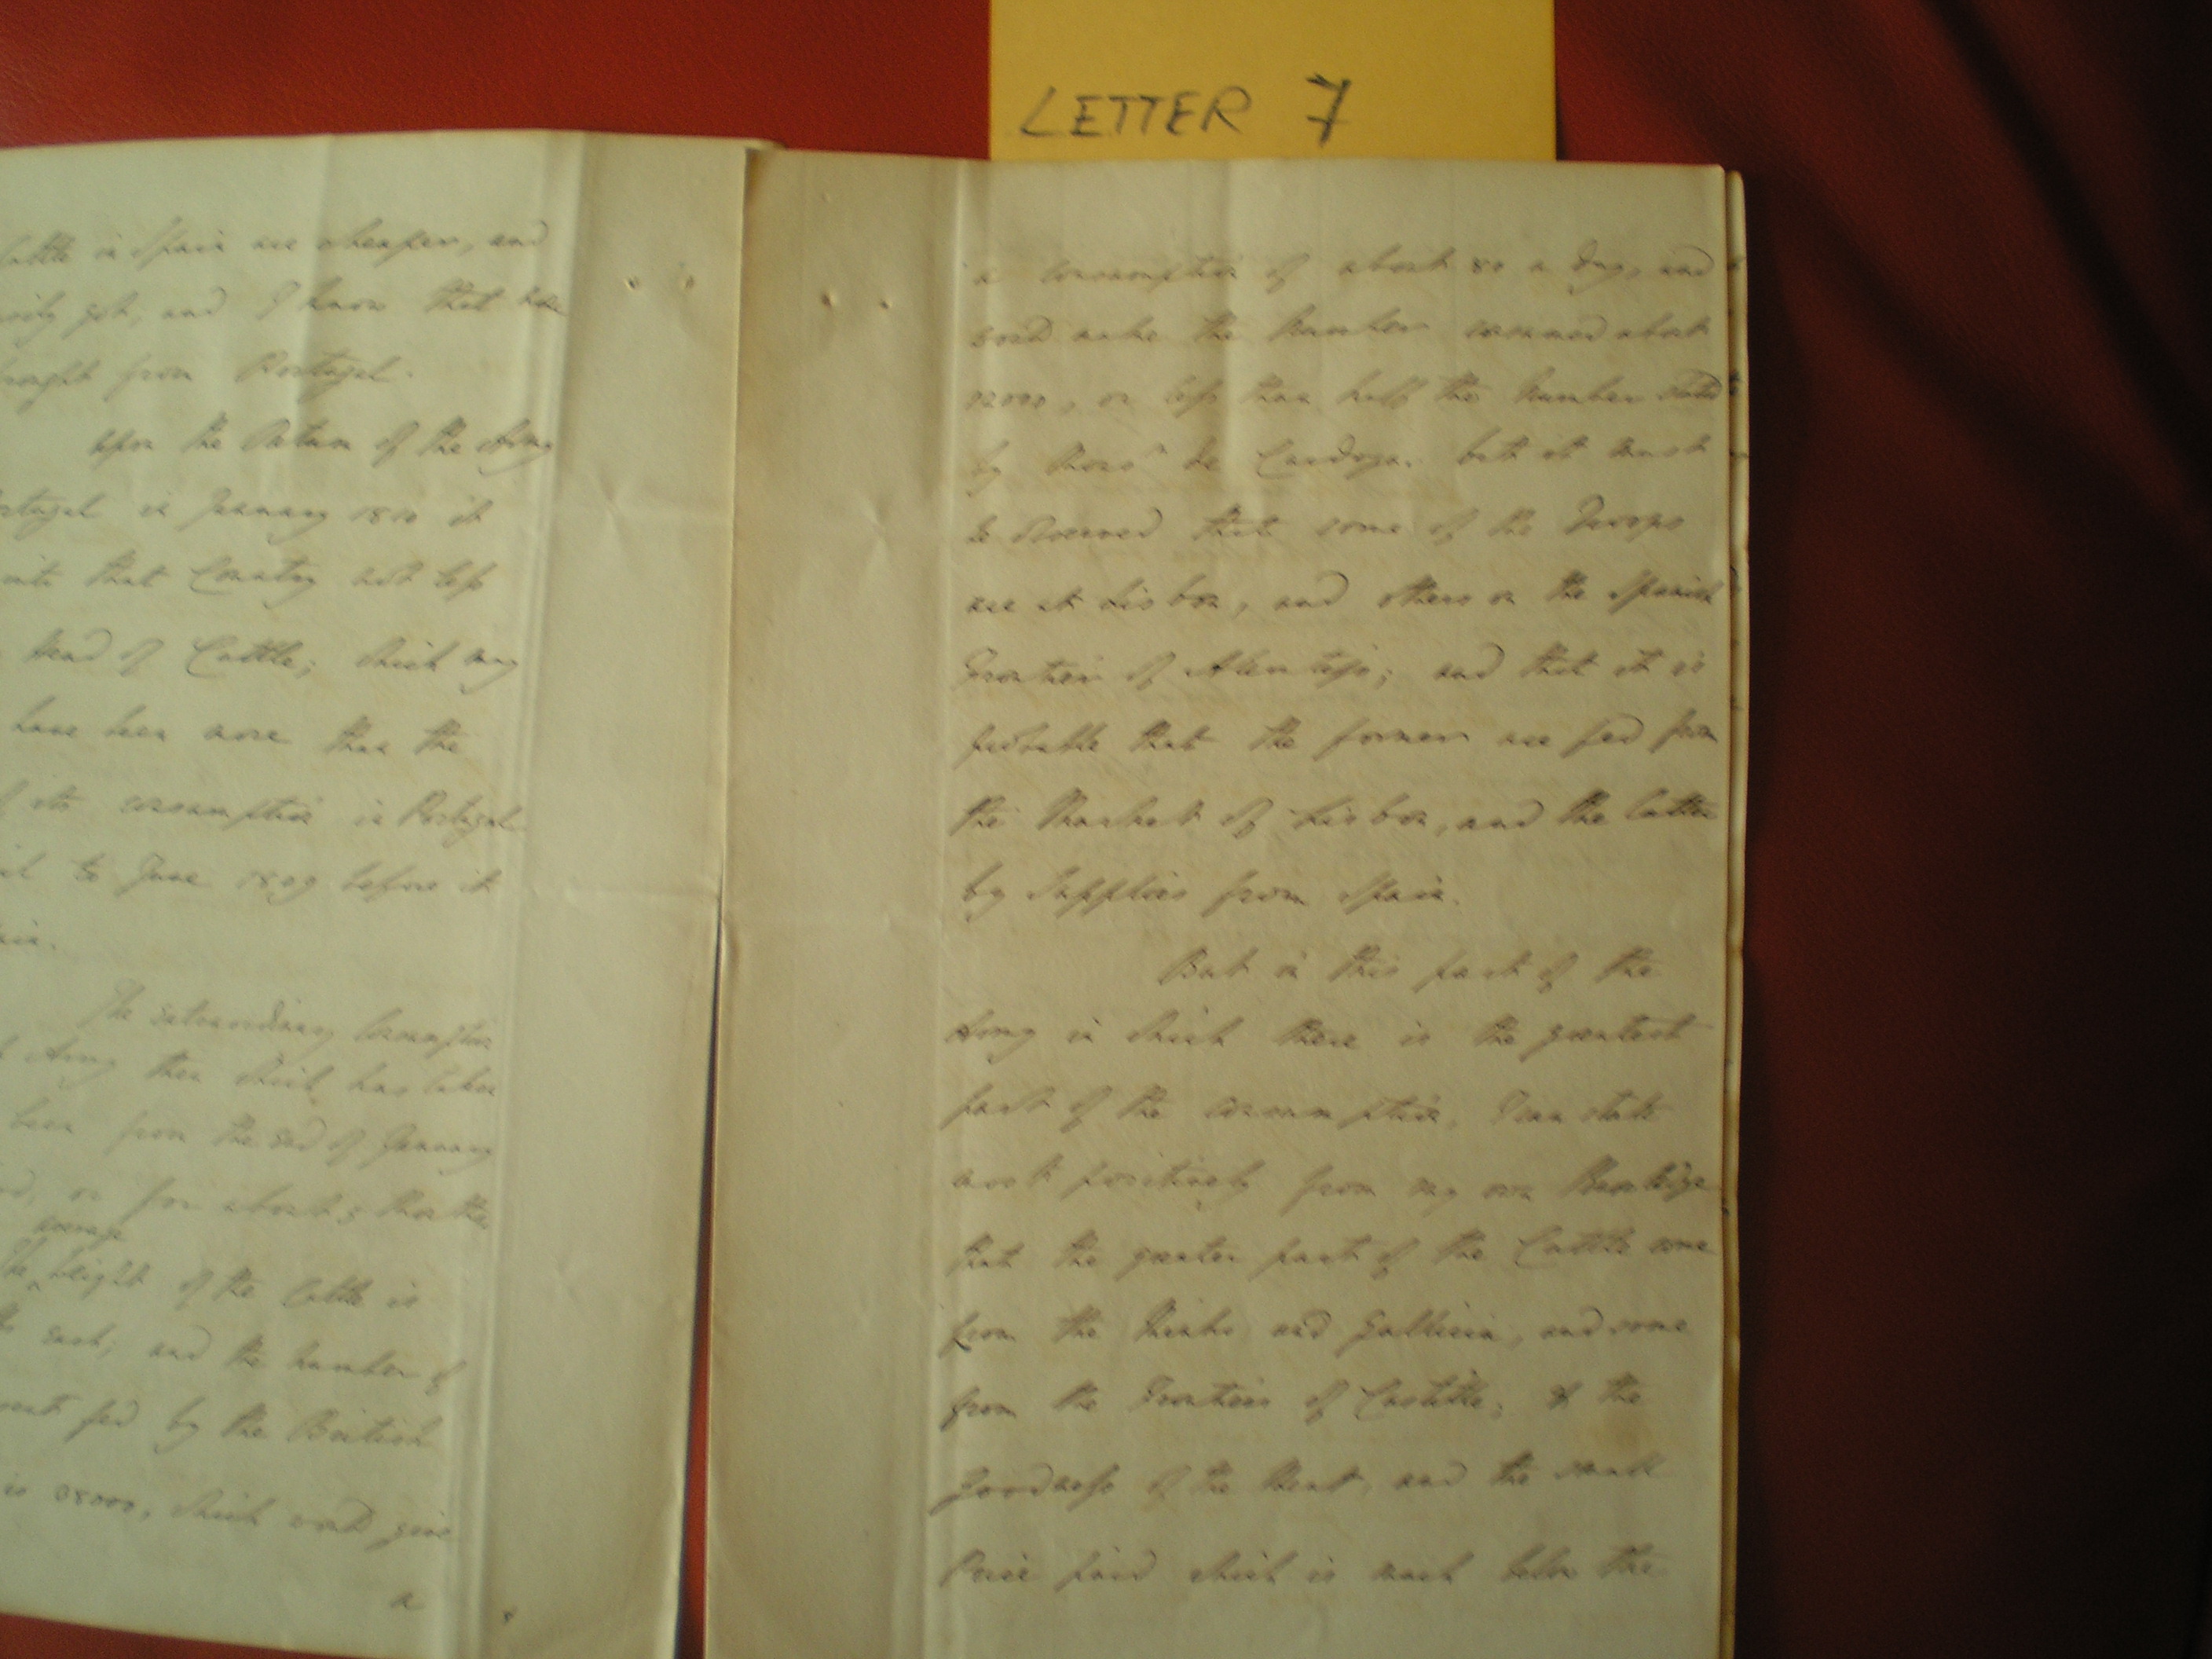 LETTER 7
Cattle in Spain are cheaper, and
got, and I know that
from Portugal.
Upon the Return of the Army
in January 1810 it
into that Country not less
Head of Cattle; which may
have been more than the
of its consumption in Portugal
to June 1809 before it
The extraordinary Consumption
Army then which has taken
been from the end of January
or for about 5 Months
average
The weight of the Cattle is
each, and the number of
fed by the British
is 38000, which would give
a
a consumption of about 80 a day, and
would make the Number consumed about
12000, or less than half the Number stated
by Monsr de Cardoza. but it must
be observed that some of the Troops
are at Lisbon, and others on the Spanish
Frontier of Alentejo; and that it is
probable that the former are fed from
the Market of Lisbon, and the latter
by Supplies from Spain.
But in this part of the
Army in which there is the greatest
part of the consumption, I can state
most positively from my own Knowledge
that the greater part of the Cattle come
from the Minho and Gallicia, and some
from the Frontiers of Castille; & the
goodness of the Meat, and the small
Price paid which is much below the